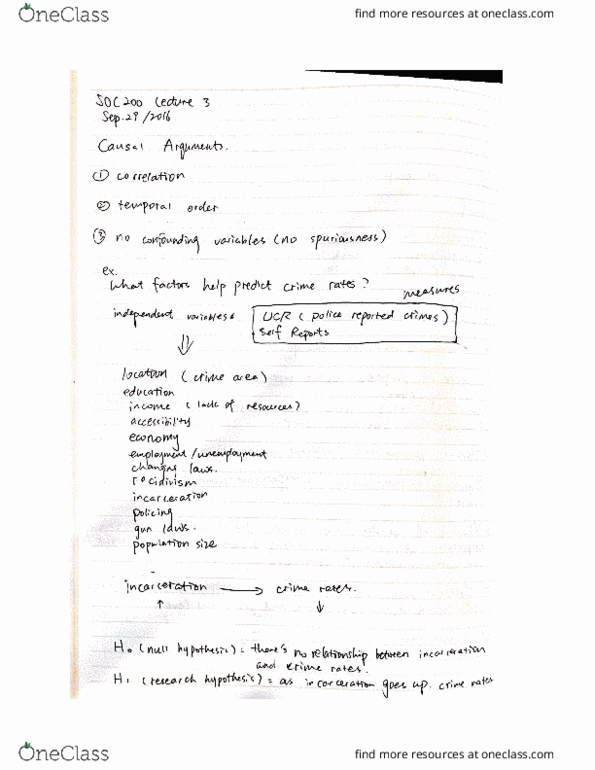 OneClass
find more resources at oneclass.com
SOC200 Lecture 3
Sep.29/2016
Causal Arguments.
① correlation
② temporal order
③ no confounding variables (no spuriousness)
ex.
What factors help predict crime rates?
measures
independent variables
UCR (police reported crimes)
Self Reports
location (crime area)
education
income (lack of resources)
accessibility
economy
employment/unemployment
changing laws.
recidivism
incarceration
policing
gun laws.
population size
incarceration → crime rates.
↑ ↓
H₀ (null hypothesis) = there's no relationship between incarceration
and crime rates.
H₁ (research hypothesis) = as incarceration goes up, crime rates
OneClass
find more resources at oneclass.com